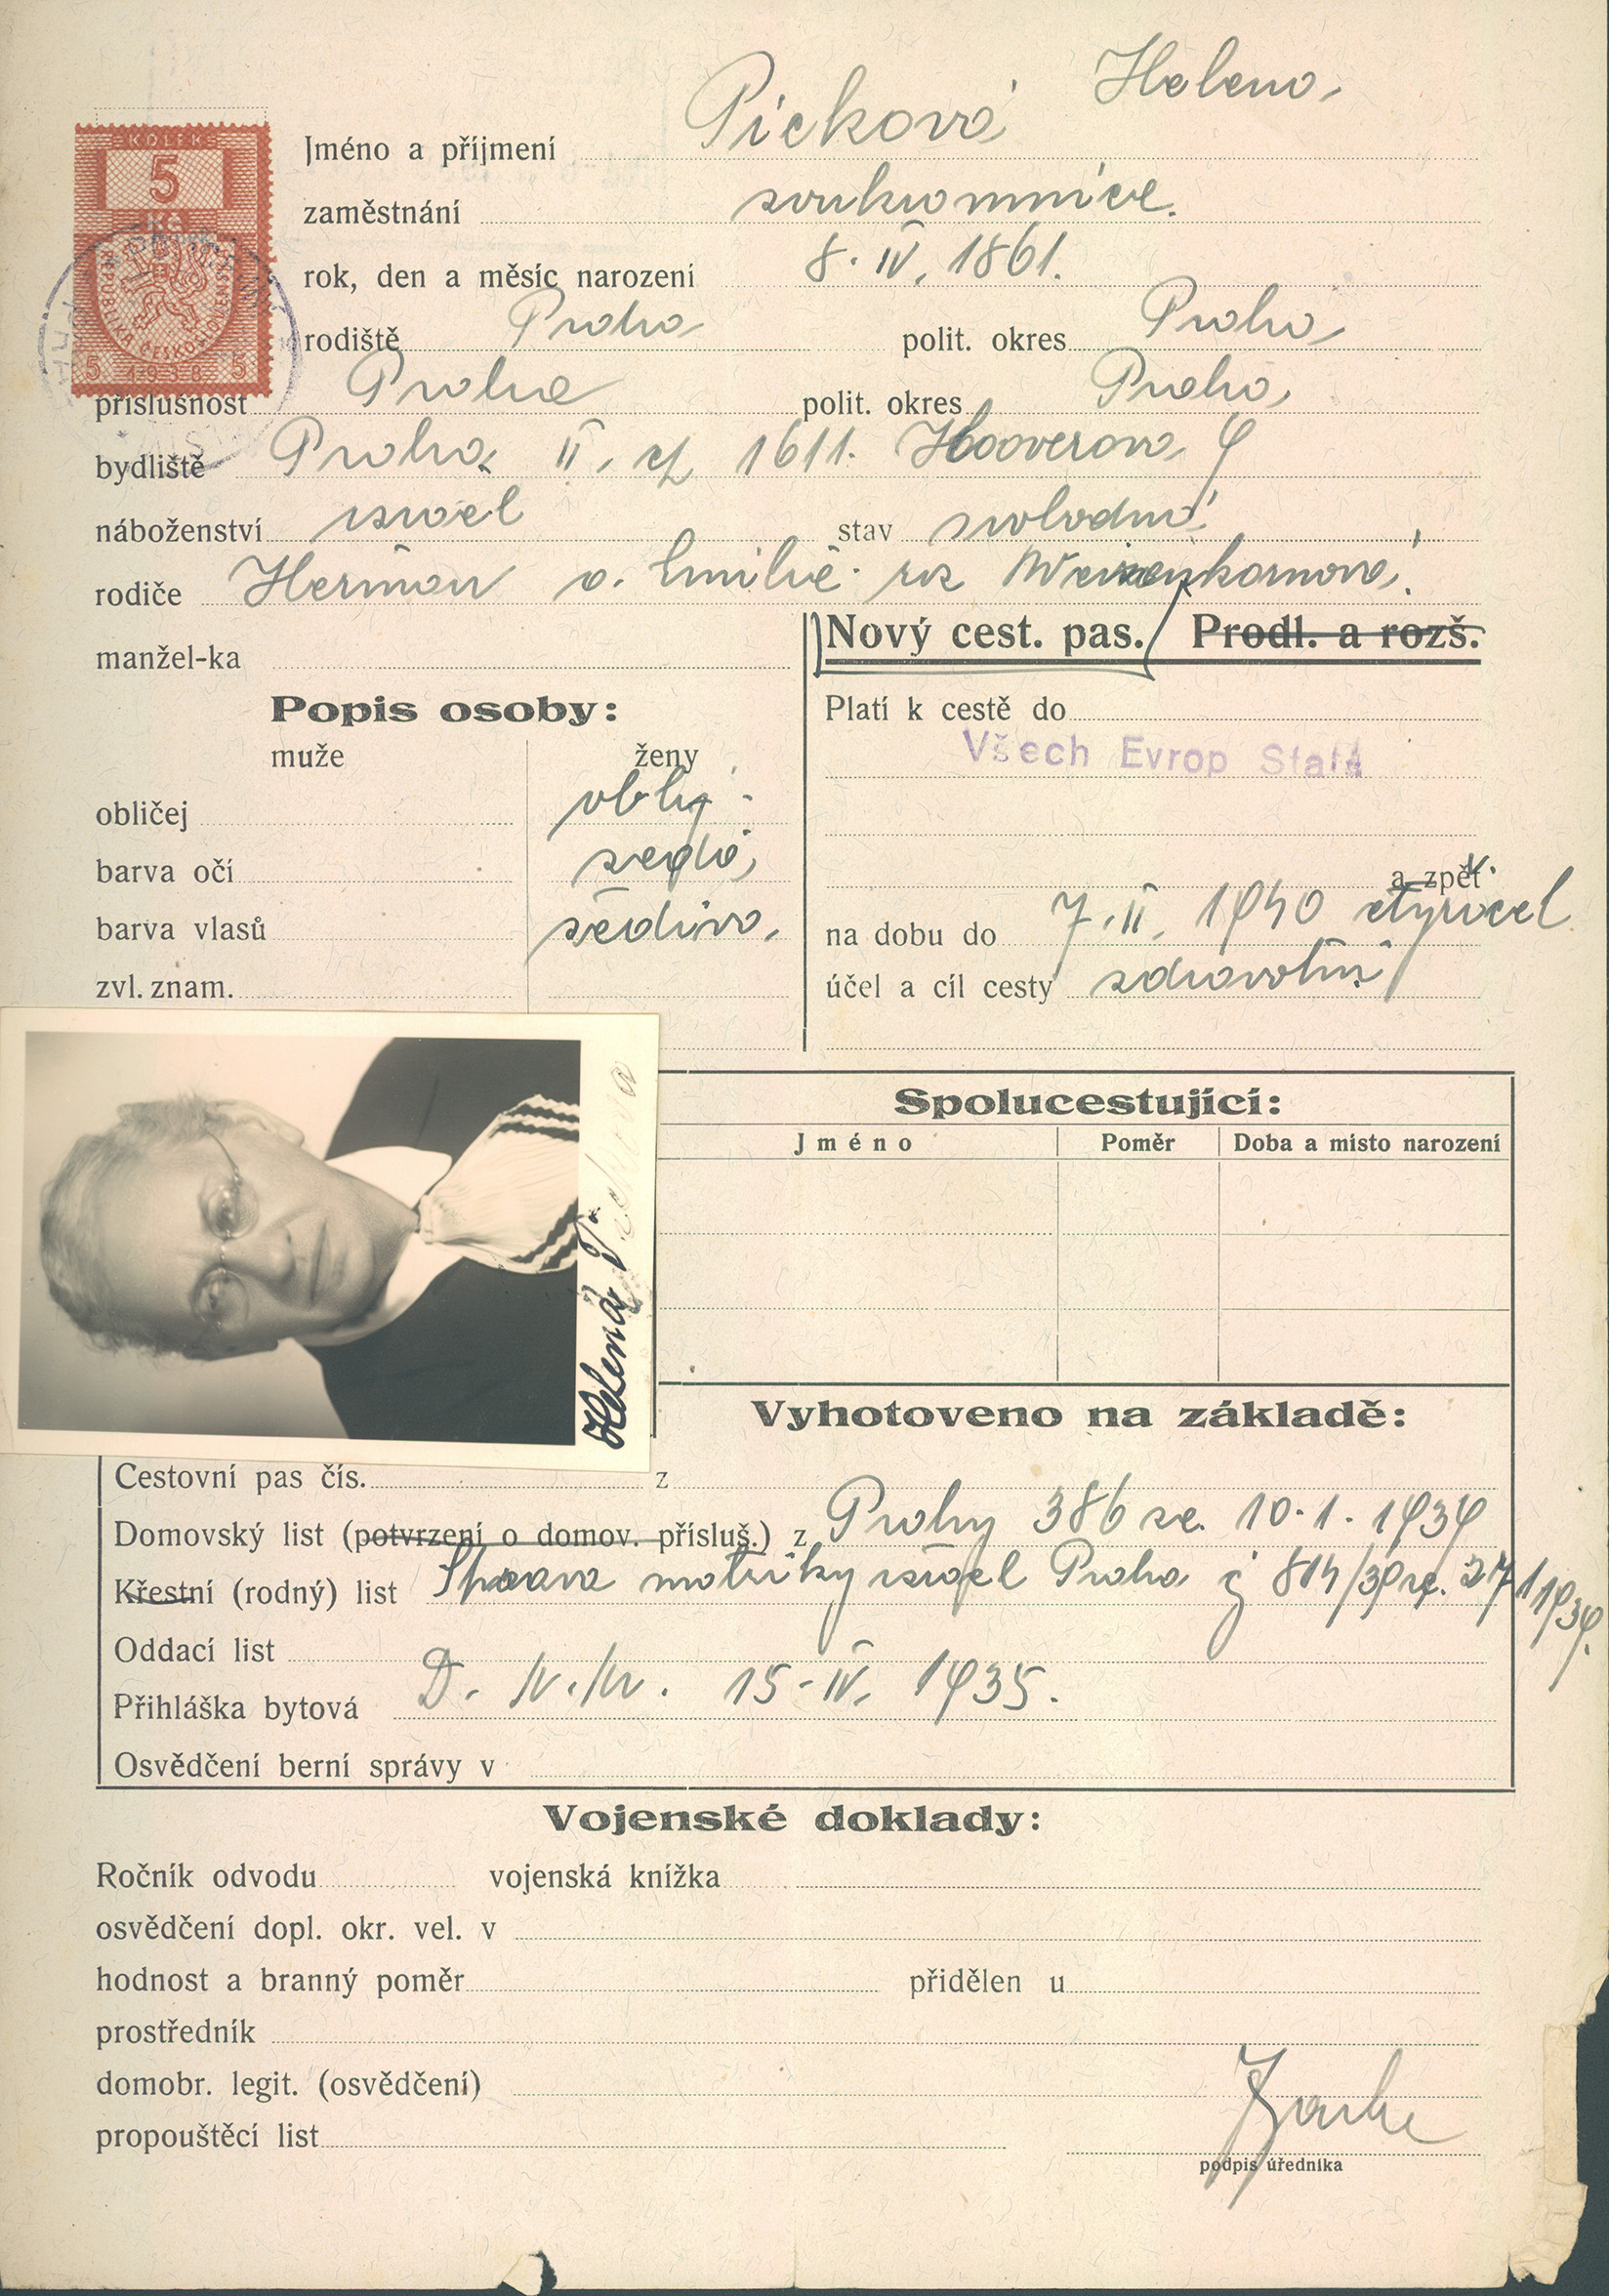 KOLEK
5
Kč
REPUBLIKA ČESKOSLOVENSKÁ
5 1938 5
Jméno a příjmení Picková Helena
zaměstnání soukromnice.
rok, den a měsíc narození 8. IV. 1861.
rodiště Praha polit. okres Praha
příslušnost Praha polit. okres Praha
bydliště Praha II. čp 1611. Hooverova 9
náboženství israel stav svobodná
rodiče Heřman a Emilie roz Weizenkornová
manžel-ka
Nový cest. pas. Prodl. a rozš.
Popis osoby:
muže ženy
obličej oblý
barva očí šedá
barva vlasů šedivá
zvl. znam.
Platí k cestě do
Všech Evrop Států
a zpět
na dobu do 7. II. 1940 čtyřicet
účel a cíl cesty zdravotní
Helena Picková
Spolucestující:
Jméno Poměr Doba a místo narození
Vyhotoveno na základě:
Cestovní pas čís. z
Domovský list (potvrzení o domov. přísluš.) z Prahy 386 ze 10. 1. 1939
Křestní (rodný) list Správa matriky israel Praha č 814/39 ze 27 1 1939.
Oddací list
Přihláška bytová D. IV. 15-IV. 1935.
Osvědčení berní správy v
Vojenské doklady:
Ročník odvodu vojenská knížka
osvědčení dopl. okr. vel. v
hodnost a branný poměr přidělen u
prostředník
domobr. legit. (osvědčení)
propouštěcí list
podpis úředníka